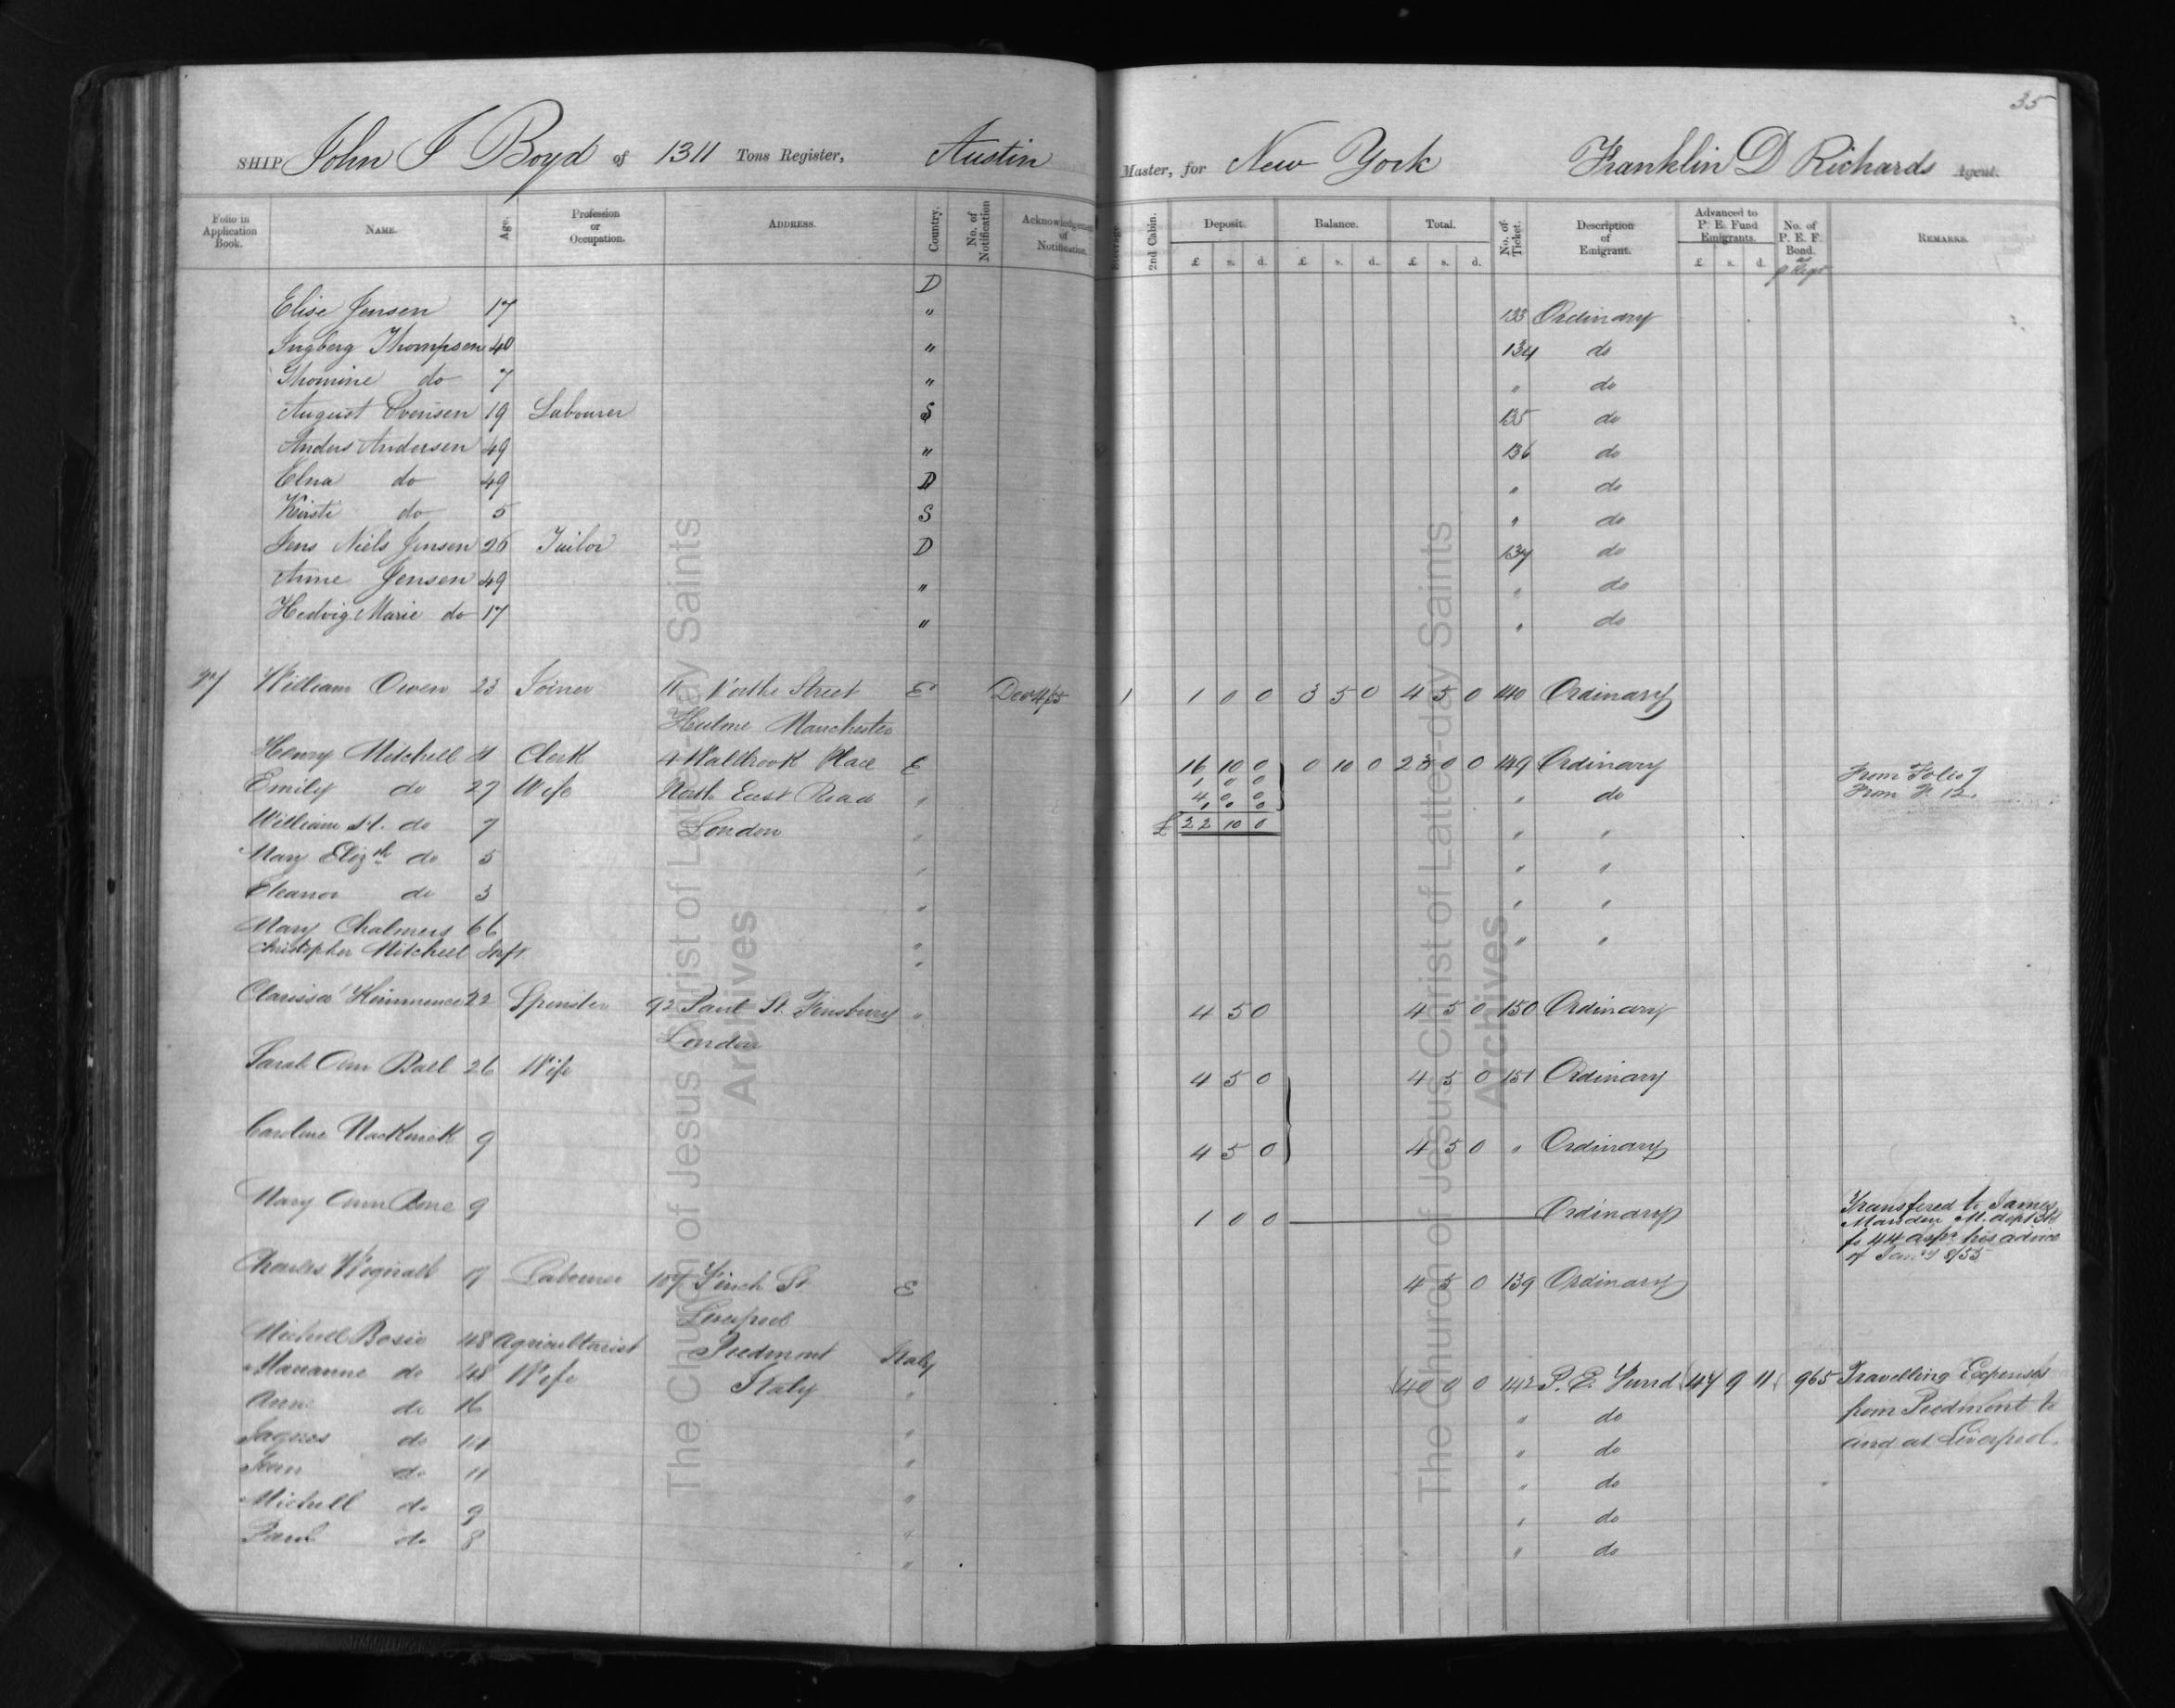 35
SHIP John J Boyd of 1311 Tons Register, Austin Master, for New York Franklin D Richards Agent.
Folio in Application Book. NAME. Age. Profession or Occupation. ADDRESS. Country. No. of Notification Acknowledgement of Notification. Steerage 2nd Cabin. Deposit. Balance. Total. No. of Ticket. Description of Emigrant. Advanced to P. E. Fund Emigrants. No. of P. E. F. Bond. REMARKS.
£ s. d. £ s. d. £ s. d. £ s. d.
D
Elise Jensen 17 " 133 Ordinary
Ingberg Thompsen 40 " 134 do
Thomine do 7 " " do
August Svensen 19 Labourer S 135 do
Anders Andersen 49 " 136 do
Elna do 49 D " do
Kirsti do 5 S " do
Jens Niels Jensen 26 Tailor D 137 do
Anne Jensen 49 " " do
Hedvig Marie do 17 " " do
William Owen 23 Joiner 11 Street E 1 1 0 0 3 5 0 4 5 0 140 Ordinary
Hulme Manchester
Henry Mitchell Clerk 4 Walbrook Place E 16 10 0 0 10 0 23 0 0 149 Ordinary From Folio 7
Emily do 27 Wife North East Road " 1 0 0 " do From F. 12.
4 0 0
1 0 0
William H. do 7 London " £ 22 10 0 " "
Mary Elizth do 5 " " "
Eleanor do 3 " " "
Mary Chalmers 66 " " "
Christopher Mitchell Inft "
Clarissa 22 Spinster 92 Paul St. Finsbury " 4 5 0 4 5 0 150 Ordinary
London
Sarah Ann Ball 26 Wife 4 5 0 4 5 0 151 Ordinary
Caroline 9 4 5 0 4 5 0 " Ordinary
Mary Ann 9 1 0 0 Ordinary Transfered to James
Marsden
fo 44 as pr his advice
of Jany 8/55
Charles 17 Labourer 107 Finch St. E 4 5 0 139 Ordinary
Liverpool
Michell Bosio 48 Agriculturist Piedmont Italy
Marianne do 48 Wife Italy " 40 0 0 142 P. E. Fund 47 9 11 965 Travelling Expenses
Ann do 16 " do from Piedmont to
Jaques do " " do and at Liverpool.
Jean do 11 " " do
Michell do 9 " " do
Paul do 8 " " do
"
The Church of Jesus Christ of Latter-day Saints
Archives
The Church of Jesus Christ of Latter-day Saints
Archives